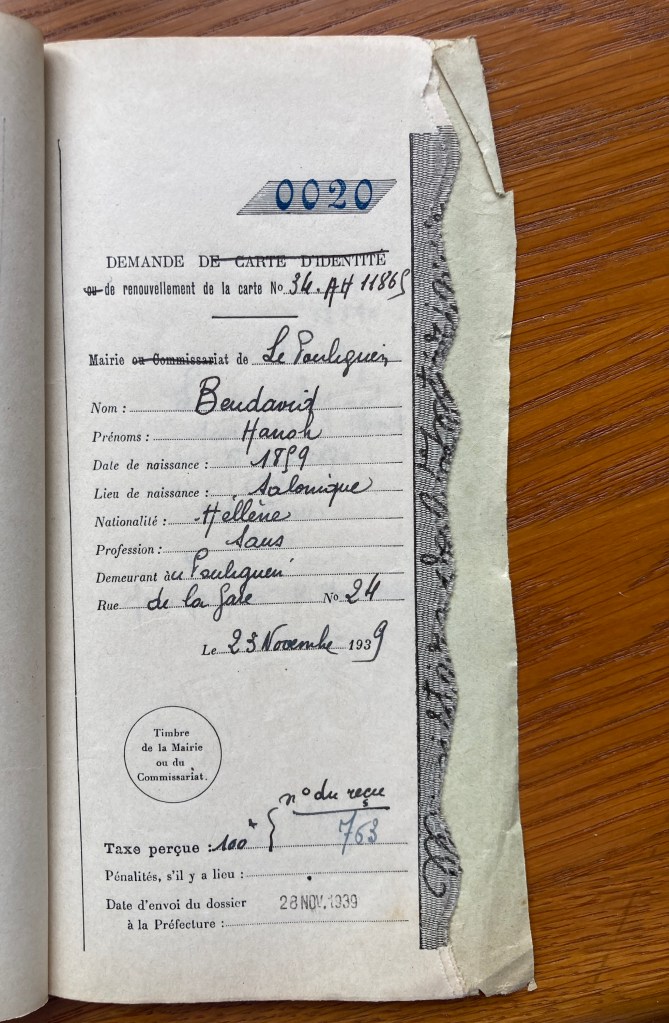 0020
DEMANDE DE CARTE D'IDENTITÉ
ou de renouvellement de la carte No 34. AH 11865
Mairie ou Commissariat de Le Pouliguen
Nom : Bendavid
Prénoms : Hanoh
Date de naissance : 1859
Lieu de naissance : Salonique
Nationalité : Hellène
Profession : Sans
Demeurant à u Pouliguen
Rue de la Gare No 24
Le 23 Novembre 1939
Timbre
de la Mairie
ou du
Commissariat.
n° du reçu
763
Taxe perçue : 100
Pénalités, s'il y a lieu :
Date d'envoi du dossier 28 NOV. 1939
à la Préfecture :